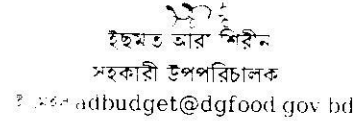 ইছমত আরা শিরীন
সহকারী উপপরিচালক
adbudget@dgfood.gov.bd